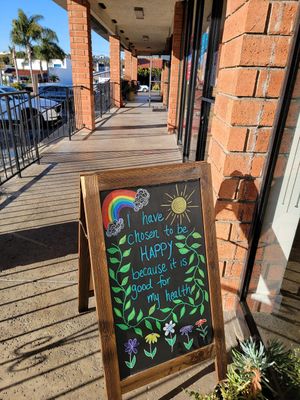 I have
chosen to be
HAPPY
because it is
good for
my health